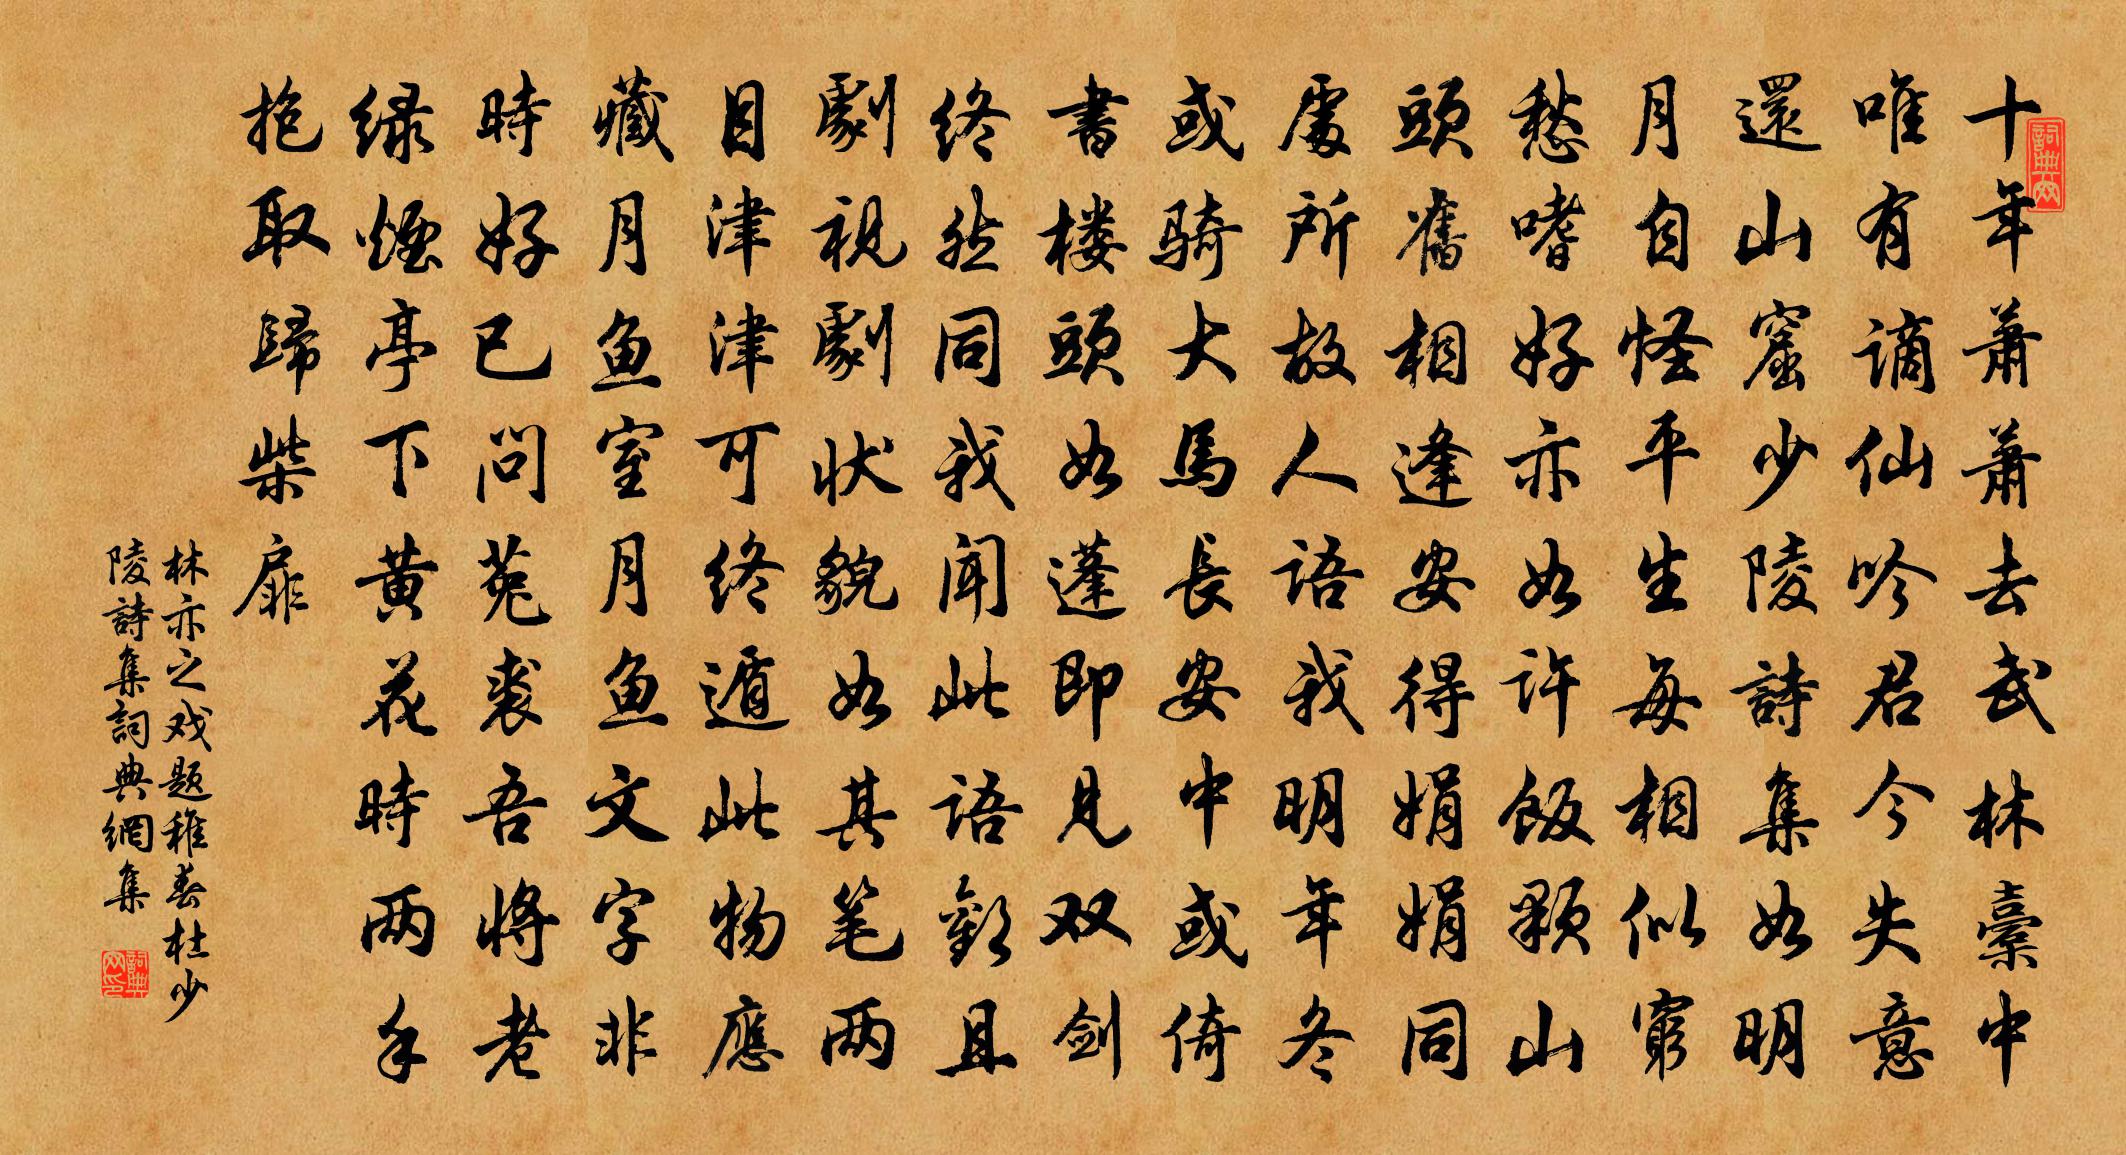 十年萧萧去武林橐中
唯有谪仙吟君今失意
還山窟少陵詩集如明
月自怪平生每相似窮
愁嗜好亦如许飯顆山
頭舊相逢安得娟娟同
處所故人語我明年冬
或骑大馬長安中或倚
書楼頭如蓬即見双剑
終然同我闻此語歡且
劇視劇状貌如其笔两
目津津可终遁此物應
藏月鱼室月鱼文字非
時好已问菟裘吾將老
绿煙亭下黄花時两手
抱取歸柴扉
林亦之戏题稚春杜少
陵詩集詞典網集
詞典网
詞典网印